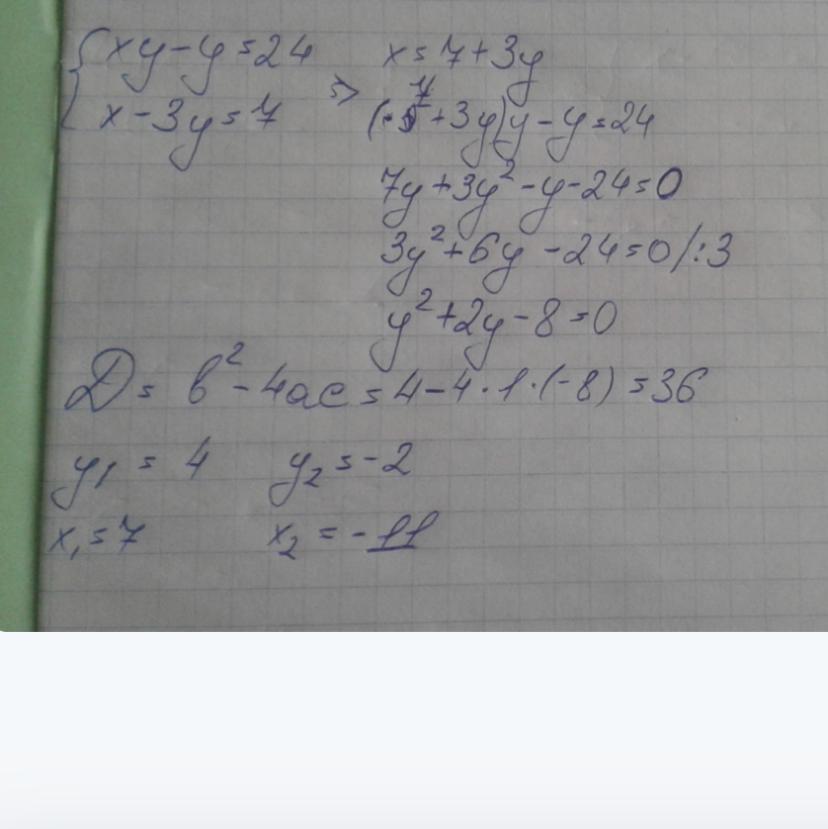 xy-y=24
x=7+3y
x-3y=7
=>
(7+3y)y-y=24
7y+3y²-y-24=0
3y²+6y-24=0/:3
y²+2y-8=0
D= b²-4ac=4-4·1·(-8)=36
y₁=4 y₂=-2
x₁=7 x₂=-11